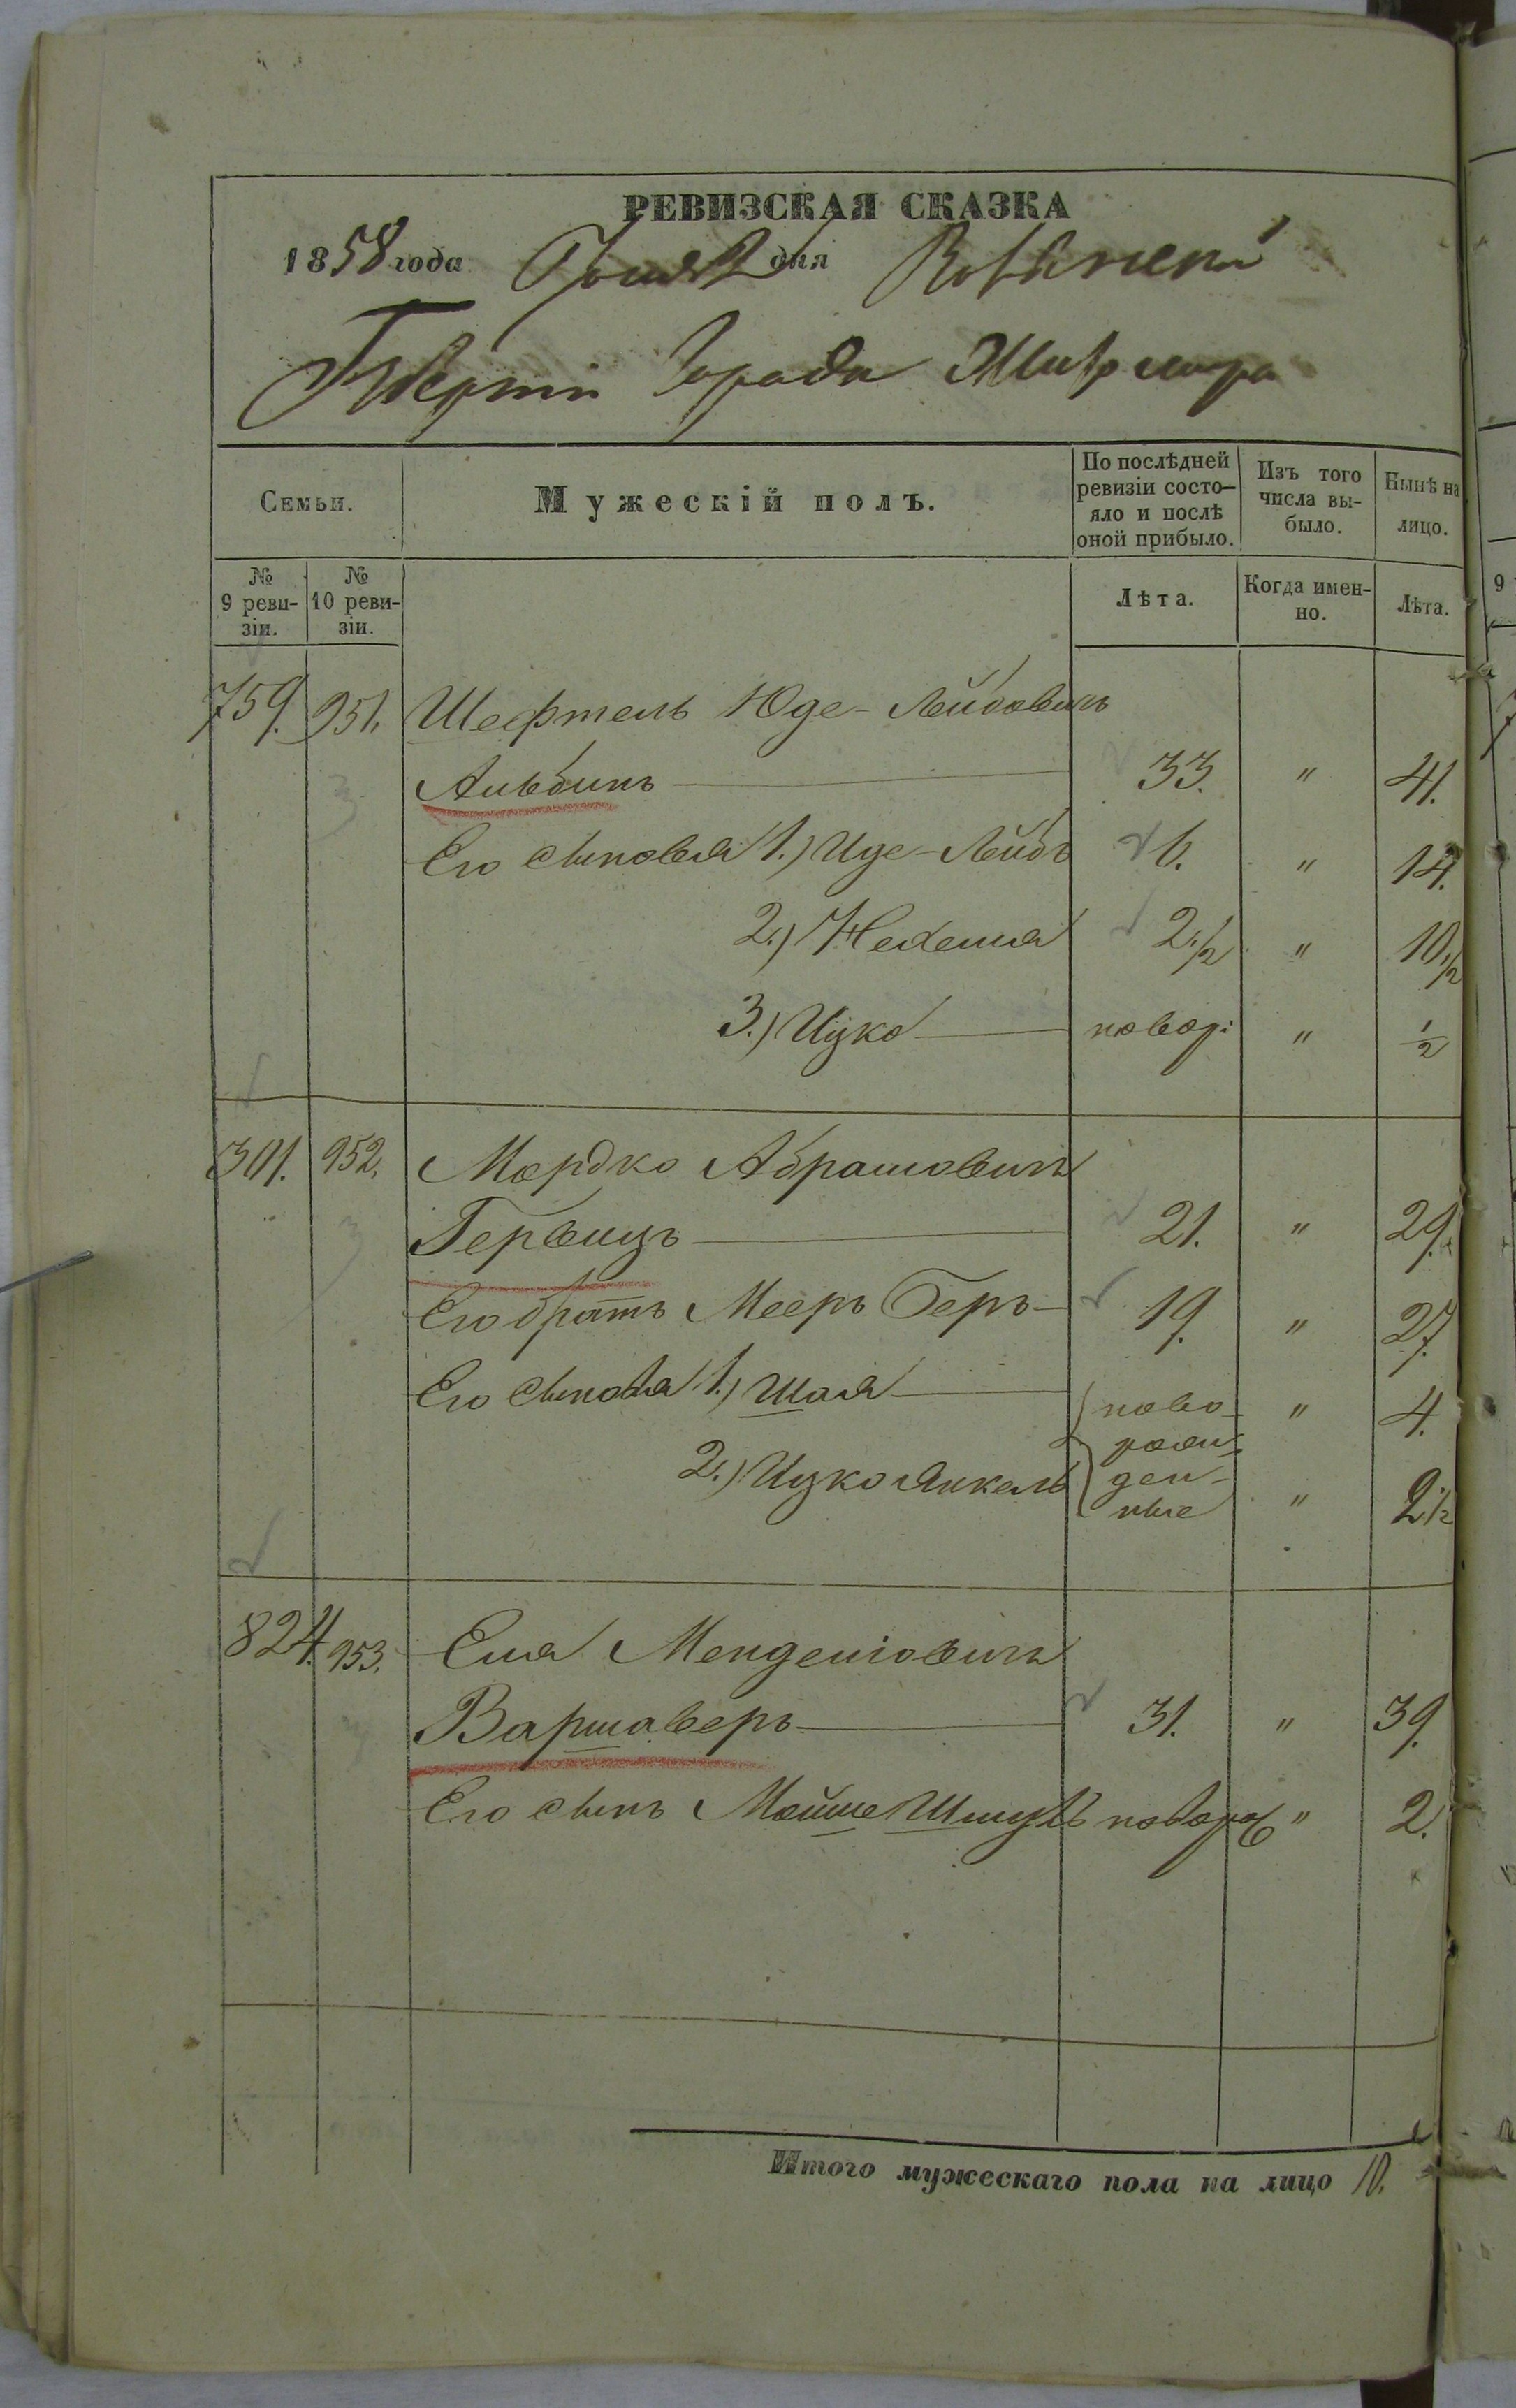 РЕВИЗСКАЯ СКАЗКА
1858 года Іюня 2 дня Волынской
Губерніи Города Житомира
Семьи.
Мужескій полъ.
По послѣдней ревизіи состо-
яло и послѣ
оной прибыло.
Изъ того
числа вы-
было.
Нынѣ на
лицо.
№
9 реви-
зіи.
№
10 реви-
зіи.
Лѣта.
Когда имен-
но.
Лѣта.
759. 951. Шефтель Юде-Лейбовичъ
Альбинъ 33. " 41.
Его сыновья 1.) Иде-Лейбъ 6. " 14.
2.) Нехемья 2 1/2 " 10 1/2
3.) Ицко новор: " 1/2
301. 952. Мордко Абрамовичъ
Гервицъ 21. " 29.
Его братъ Мееръ Беръ 19. " 27.
Его сыновья 1.) Шая ново- " 4.
рож-
2.) Ицко Янкель ден- " 2 1/2
ные
824. 953. Еля Менделіовичъ
Варшаверъ 31. " 39.
Его сынъ Мойше Шмуль новорож " 2.
Итого мужескаго пола на лицо 10.